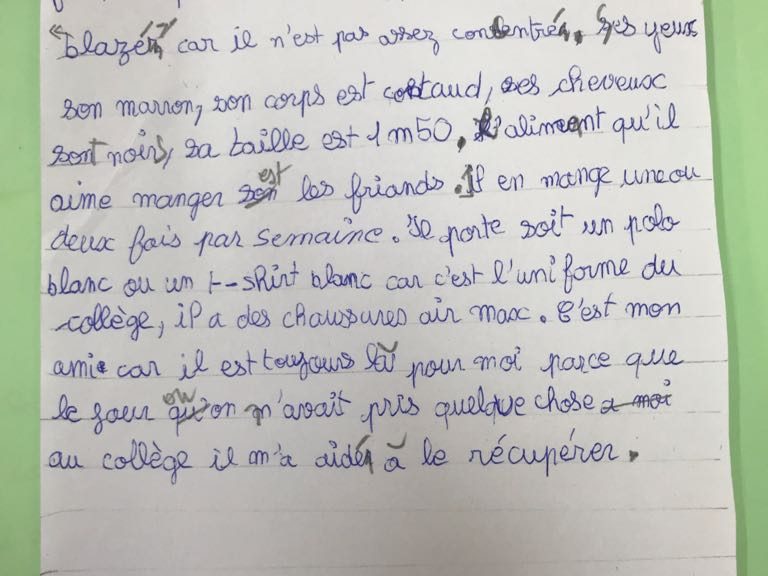 "blazé", car il n'est pas assez concentré. Ses yeux
son marron, son corps est costaud, ses cheveux
sont noirs, sa taille est 1m50, l'aliment qu'il
aime manger est les friands. Il en mange une ou
deux fois par semaine. Je porte soit un polo
blanc ou un t-shirt blanc car c'est l'uniforme du
collège, il a des chaussures air max. C'est mon
ami car il est toujours là pour moi parce que
le jour où on m'avait pris quelque chose a moi
au collège il m'a aidé à le récupérer.